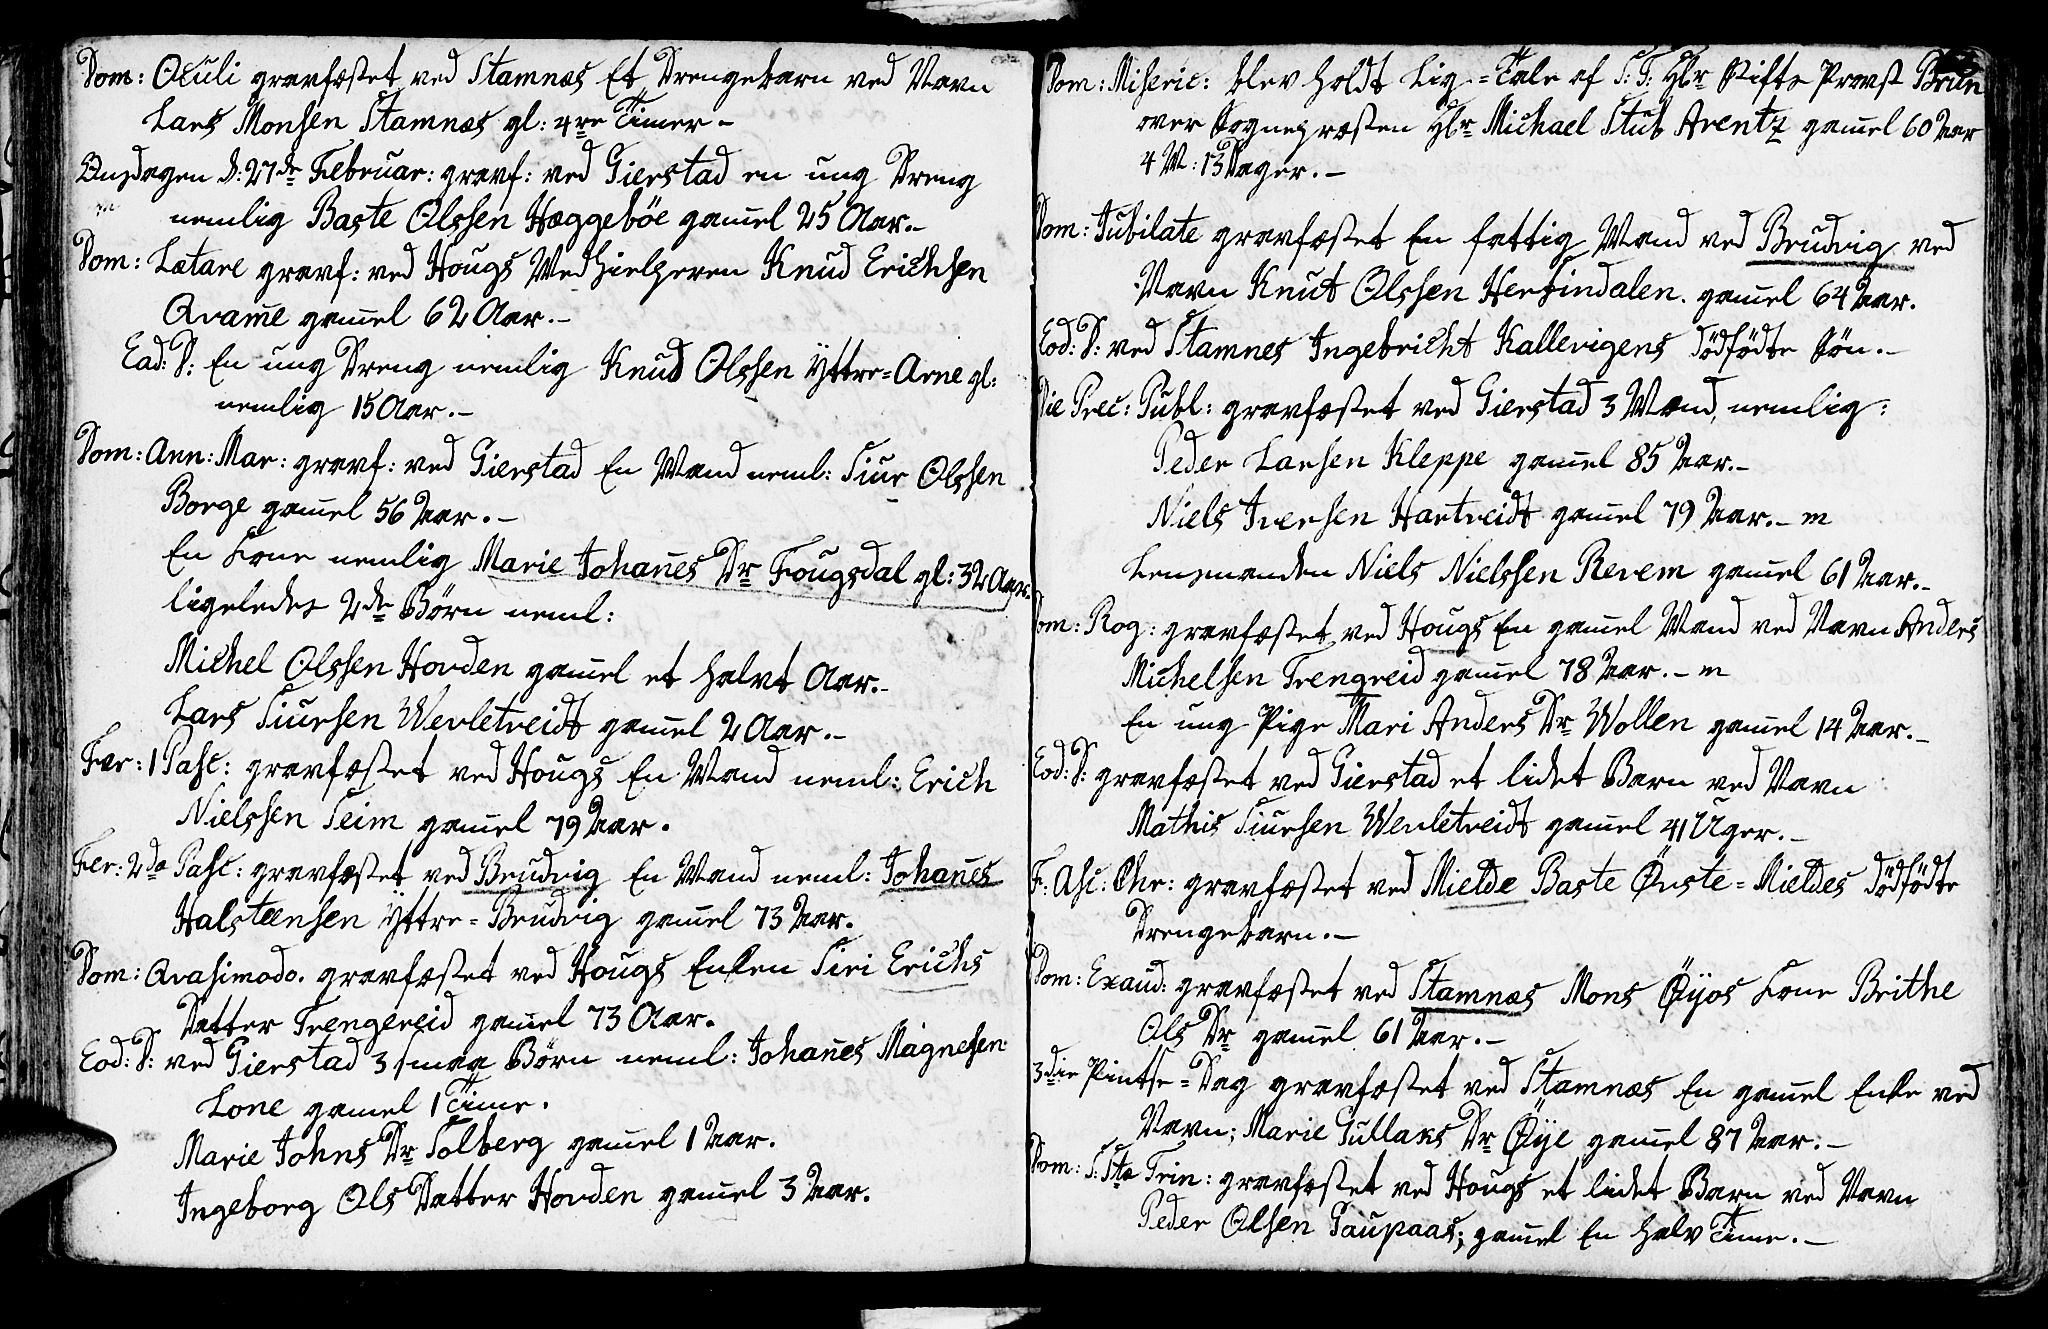 Dom: Oculi gravfæstet ved Stamnæs Et Drengebarn ved Navn
Lars Monsen Stamnæs gl: 4re Timer –
Onsdagen d: 27de Februar: gravf: ved Gierstad en ung Dreng
nemlig Baste Olssen Hæggebøe gamel 25 Aar. –
Dom: Lætare gravf: ved Hougs Medhielperen Knud Erichsen
Qvame gamel 62 Aar. –
Ead: D: En ung Dreng nemlig Knud Olssen Yttre=Arne gl:
nemlig 15 Aar. –
Dom: Ann: Mar: gravf: ved Gierstad En Mand neml: Siur Olssen
Borge gamel 56 Aar. –
En Kone nemlig Marie Johanes Dr Fougsdal gl: 32 Aar. –
ligeledes 2de Børn neml:
Michel Olssen Hovden gamel et halvt Aar. –
Lars Siursen Wevletveidt gamel 2 Aar. –
Fer: 1 Pasc: gravfæstet ved Hougs En Mand neml: Erich
Nielssen Seim gamel 79 Aar.
Fer: 2da Pasc: gravfæstet ved Brudvig En Mand neml: Johanes
Halsteensen Yttre=Brudvig gamel 73 Aar.
Dom: Qvasimodo. gravfæstet ved Hougs Enken Siri Erichs
Datter Trengereid gamel 73 Aar.
Eod: D: ved Gierstad 3 smaa Børn neml: Johanes Magnesen
Lone gamel 1 Time.
Marie Johns Dr Solberg gamel 1 Aar.
Ingeborg Ols Datter Hovden gamel 3 Aar.
Dom: Miseric: blev holdt Lig=Tale af S: T: Hr Stifts Provst Brun
over Sognepræsten Hr Michael Stub Arentz gamel 60 Aar
4 M: 13 Dager. –
Dom: Jubilate gravfæstet En fattig Mand ved Brudvig ved
Navn Knut Olssen Herfindalen. gamel 64 Aar.
Eod: D: ved Stamnes Ingebricht Kallevigens dødfødte Søn. –
Die Prec: Publ: gravfæstet ved Gierstad 3 Mænd, nemlig:
Peder Larsen Kleppe gamel 85 Aar. –
Niels Iversen Hartveidt gamel 79 Aar. – m
Lensmanden Niels Nielssen Revem gamel 61 Aar. –
Dom: Rog: gravfæstet ved Hougs En gamel Mand ved Navn Anders
Michelsen Trengreid gamel 78 Aar. – m
En ung Pige Mari Anders Dr Wollen gamel 14 Aar. –
Eod: D: gravfæstet ved Gierstad et lidet Barn ved Navn
Mathis Siursen Wevletveidt gamel 41 Uger. –
F: Asc: Chr: gravfæstet ved Mielde Baste Øvste=Mieldes dødfødte
Drengebarn. –
Dom: Exaud: gravfæstet ved Stamnæs Mons Øyos Kone Brithe
Ols Dr gamel 61 Aar. –
3die Pintse=Dag gravfæstet ved Stamnæs En gamel Enke ved
Navn; Marie Gullaks Dr Øye gamel 87 Aar: –
Dom: S: Stæ Trin: gravfæstet ved Hougs et lidet Barn ved Navn
Peder Olsen Taupaas; gamel En halv Time. –